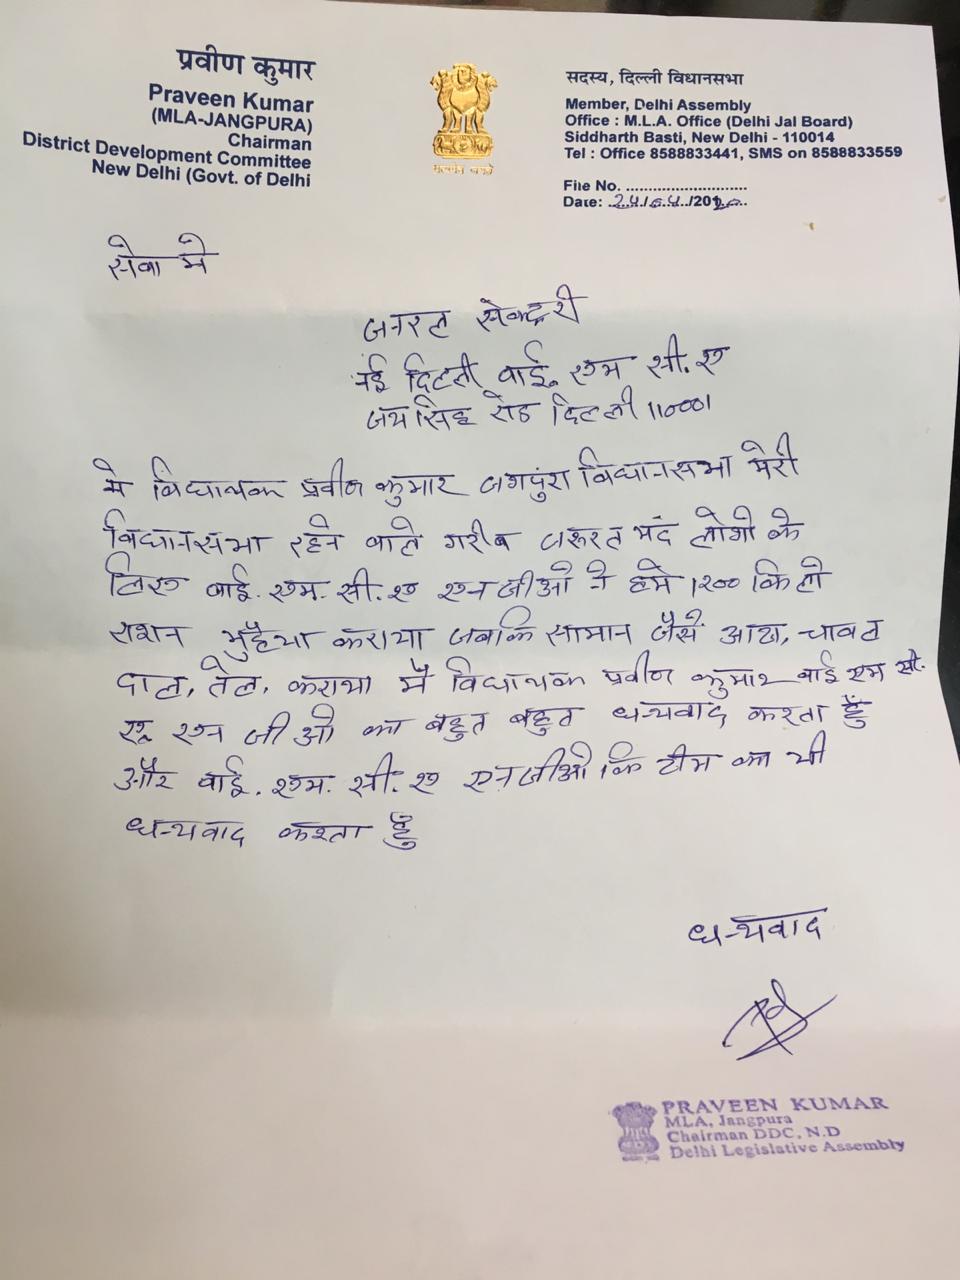 प्रवीण कुमार
Praveen Kumar
(MLA-JANGPURA)
Chairman
District Development Committee
New Delhi (Govt. of Delhi
सत्यमेव जयते
सदस्य, दिल्ली विधानसभा
Member, Delhi Assembly
Office : M.L.A. Office (Delhi Jal Board)
Siddharth Basti, New Delhi - 110014
Tel : Office 8588833441, SMS on 8588833559
File No. ...........................
Date: 24/04/2020
सेवा मे
जनरल सेक्ट्ररी
नई दिल्ली वाई. एम सी. ए
जयसिंह रोड दिल्ली 110001
मे विधायक प्रवीण कुमार जगपुरा विधानसभा मेरी
विधानसभा रहने वाले गरीब जरूरत मंद लोगो के
लिए वाई. एम. सी. ए एनजीओ ने हमे 1200 किलो
राशन मुहैया कराया जबकि सामान जैसे आटा, चावल
दाल, तेल, कराया मैं विधायक प्रवीण कुमार वाई एम सी.
ए एन जी ओ का बहुत बहुत धन्यवाद करता हुँ
और वाई. एम. सी. ए एनजीओ कि टीम का भी
धन्यवाद करता हुँ
धन्यवाद
PRAVEEN KUMAR
MLA, Jangpura
Chairman DDC, N.D
Delhi Legislative Assembly